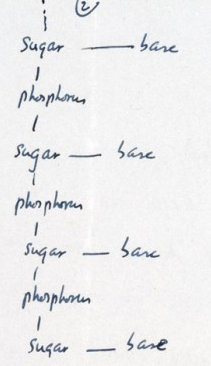 2
sugar — base
phosphorus
sugar — base
phosphorus
sugar — base
phosphorus
sugar — base